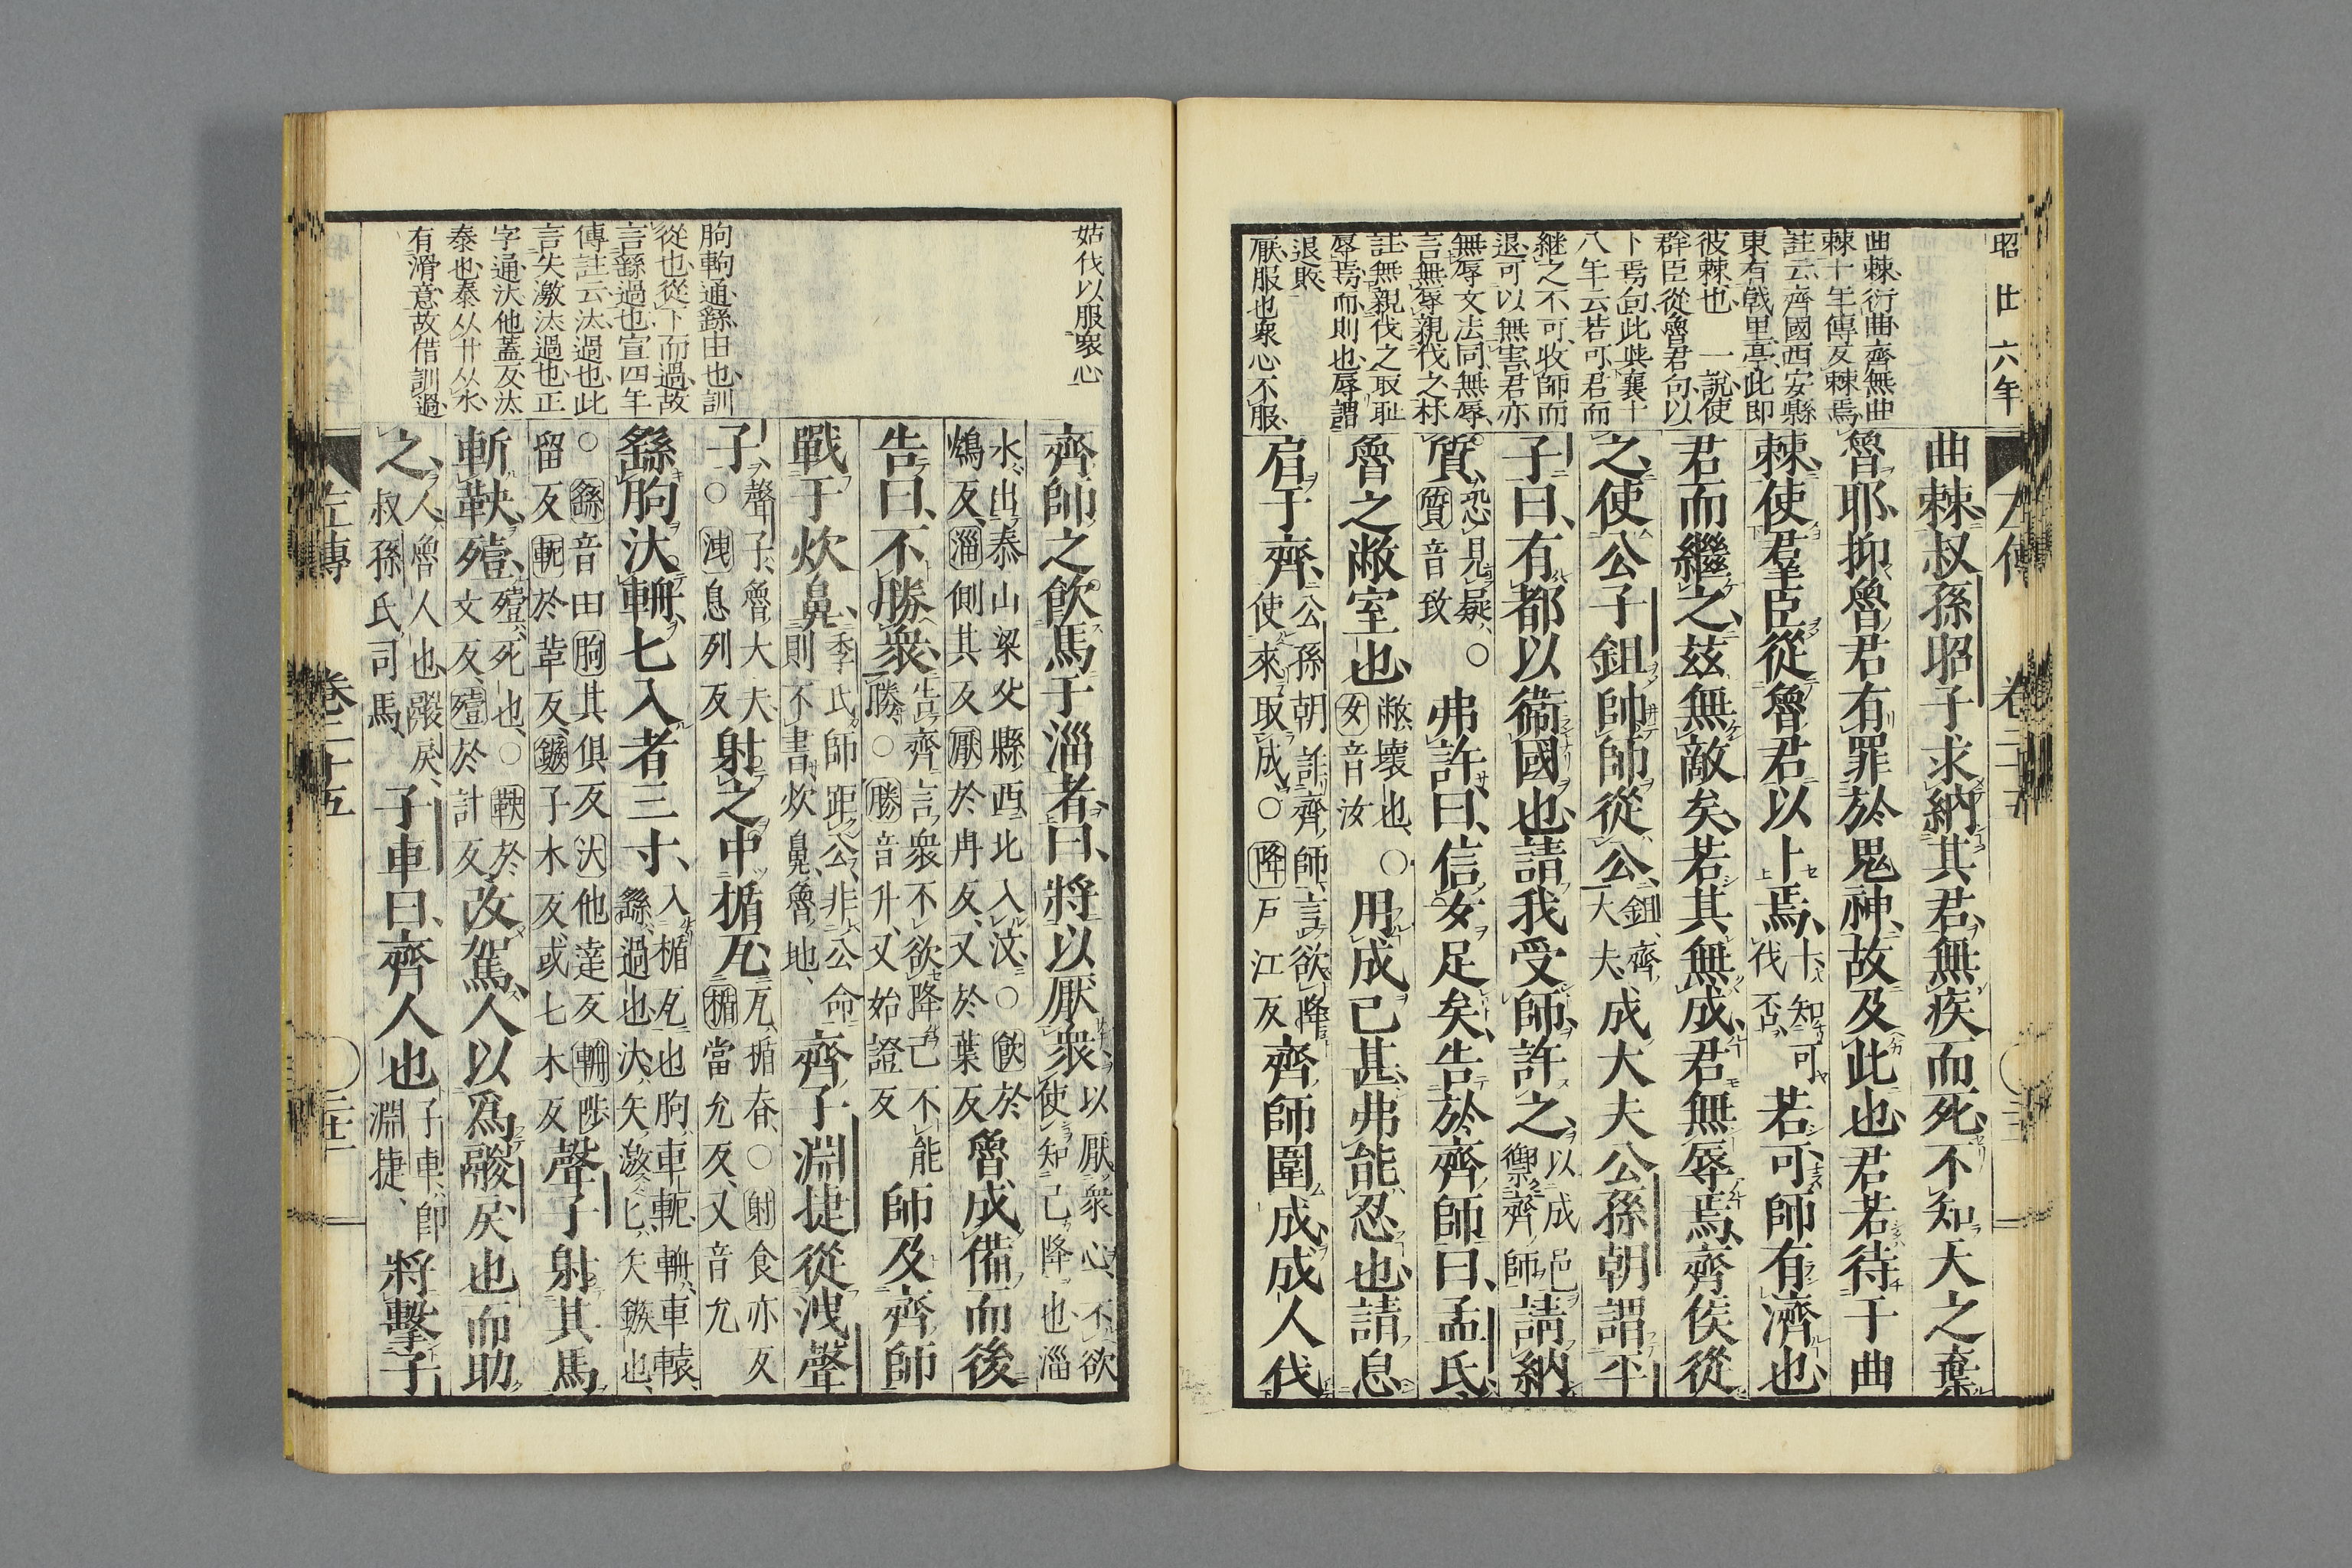 昭廿六年
曲棘衍曲齊無曲
棘十年傳及棘焉
註云齊國西安縣
東有戟里亭此即
彼棘也 一說使
群臣從魯君句以
卜焉句此與襄十
八年云若可君而
継之不可收師而
退可以無害君亦
無辱文法同無辱
言無辱親伐之林
註無親伐之取耻
辱焉而則也辱謂
退敗
厭服也衆心不服
曲棘叔孫昭子求納其君無疾而死不知天之棄
魯耶抑魯君有罪於鬼神故及此也君若待于曲
棘使羣臣從魯君以卜焉卜知可伐否若可師有濟也
君而繼之玆無敵矣若其無成君無辱焉齊侯從
之使公子鉏帥師從公鉏齊大夫成大夫公孫朝謂平
子曰有都以衞國也請我受師許之以成邑禦齊師請納
質恐見疑○質音致弗許曰信女足矣告於齊師曰孟氏
魯之敝室也敝壞也○女音汝用成已甚弗能忍也請息
肩于齊公孫朝詐齊師言欲降使來取成○降戸江反齊師圍成成人伐
左傳 卷二十五
姑伐以服衆心
朐軥通繇由也訓
從也從下而過故
言繇過也宣四年
傳註云汰過也此
言失激汰過也正
字通汏他蓋反汰
泰也泰从廾从水
有滑意故借訓過
齊師之飮馬于淄者曰將以厭衆以厭衆心不欲使知己降也淄
水出泰山梁父縣西北入汶○飮於鴆反淄側其反厭於冉反又於葉反魯成備而後
告曰不勝衆告齊言衆不欲降己不能勝○勝音升又始證反師及齊師
戰于炊鼻季氏師距公非公命則不書炊鼻魯地齊子淵捷從洩聲
子聲子魯大夫○洩息列反射之中楯瓦瓦楯脊○射食亦反楯當允反又音允
繇朐汏輈匕入者三寸入楯瓦也朐車軛輈車轅繇過也汏矢激匕矢鏃也
○繇音由朐其俱反汏他達反輈陟留反軛於革反鏃子木反或七木反聲子射其馬
斬鞅殪殪死也○鞅於文反殪於計反改駕人以爲鬷戾也而助
之人魯人也鬷戾叔孫氏司馬子車曰齊人也子車即淵捷將擊子
左傳 卷二十五 ○三十二